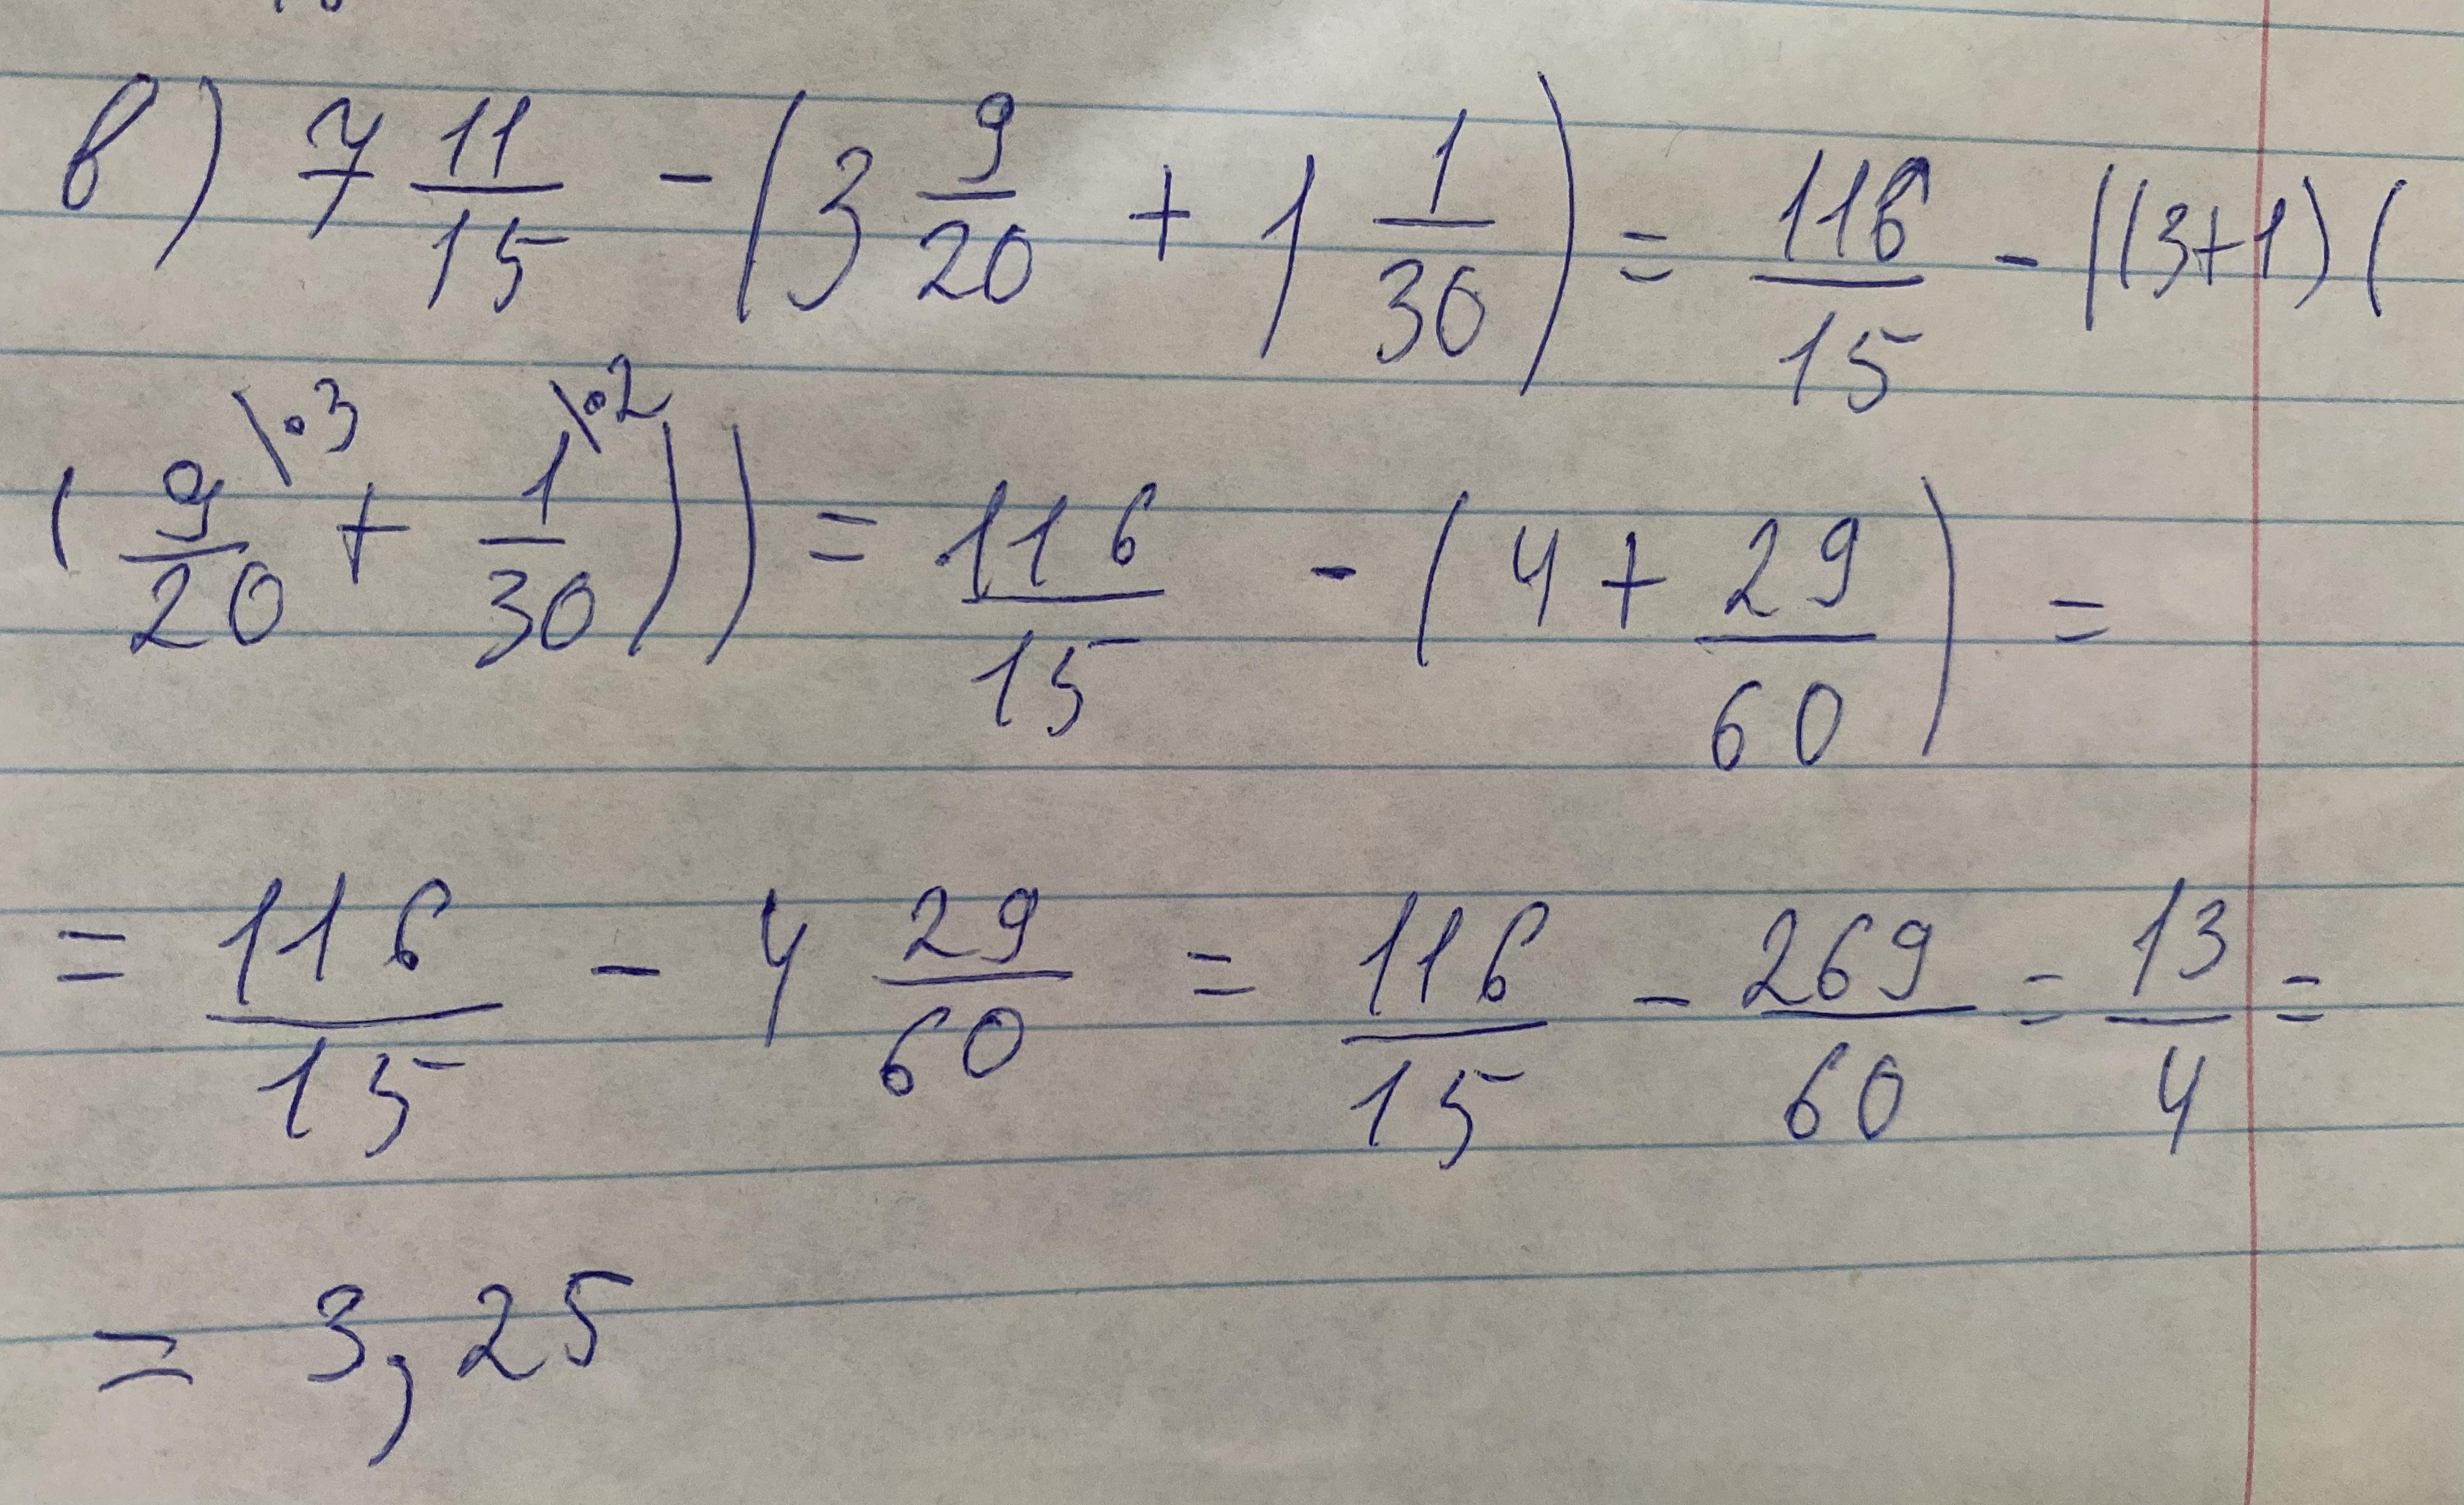 в) 7 11/15 - (3 9/20 + 1 1/30) = 116/15 - ((3+1) (
(9/20 \·3 + 1/30 \·2)) = 116/15 - (4 + 29/60) =
= 116/15 - 4 29/60 = 116/15 - 269/60 = 13/4 =
= 3,25